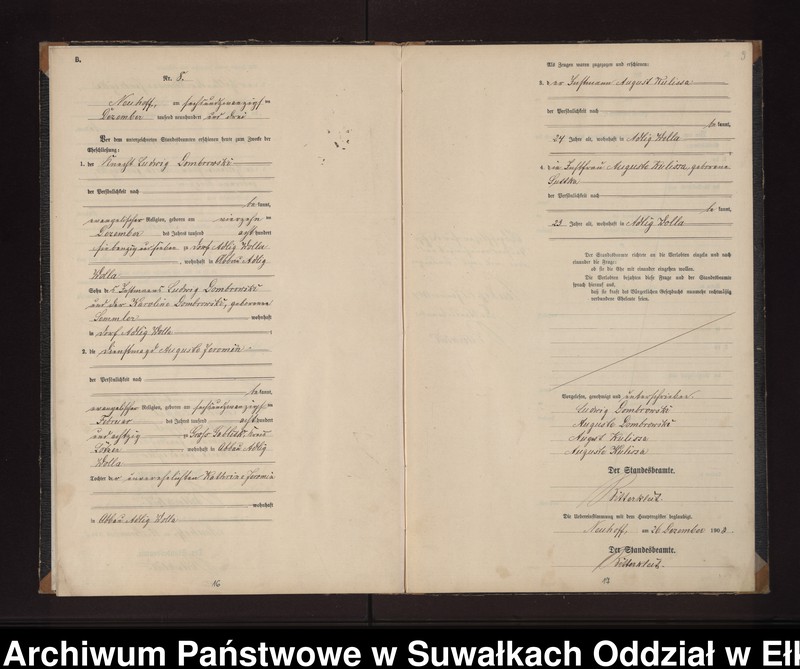 B.
Nr. 8.
Neuhoff, am sechsundzwanzigsten
Dezember tausend neunhundert und drei
Vor dem unterzeichneten Standesbeamten erschienen heute zum Zwecke der
Eheschließung:
1. der Knecht Ludwig Dombrowski
der Persönlichkeit nach
be kannt,
evangelischer Religion, geboren am vierzehnten
Dezember des Jahres tausend acht hundert
siebenzig und sieben zu Dorf Adlig Wolla
, wohnhaft in Abbau Adlig
Wolla
Sohn des Instmanns Ludwig Dombrowski
und der Karoline Dombrowski, geborene
Sommler wohnhaft
in Dorf Adlig Wolla ;
2. die Dienstmagd Auguste Jeromin
der Persönlichkeit nach
be kannt,
evangelischer Religion, geboren am sechsundzwanzigsten
Februar des Jahres tausend acht hundert
und achtzig zu Groß Gablick, Kreis
Lötzen , wohnhaft in Abbau Adlig
Wolla
Tochter der unverehelichten Katharine Jeromin
, wohnhaft
in Abbau Adlig Wolla
16
Als Zeugen waren zugezogen und erschienen:
3. der Instmann August Kulissa
der Persönlichkeit nach
be kannt,
24 Jahre alt, wohnhaft in Adlig Wolla
4. die Instfrau Auguste Kulissa, geborene
der Persönlichkeit nach
be kannt,
23 Jahre alt, wohnhaft in Adlig Wolla
Der Standesbeamte richtete an die Verlobten einzeln und nach
einander die Frage:
ob sie die Ehe mit einander eingehen wollen.
Die Verlobten bejahten diese Frage und der Standesbeamte
sprach hierauf aus,
daß sie kraft des Bürgerlichen Gesetzbuchs nunmehr rechtmäßig
verbundene Eheleute seien.
Vorgelesen, genehmigt und unterschrieben
Ludwig Dombrowski
Auguste Dombrowski
August Kulissa
Auguste Kulissa
Der Standesbeamte.
Die Uebereinstimmung mit dem Hauptregister beglaubigt.
Neuhoff, am 26 Dezember 1903
Der Standesbeamte.
17
Archiwum Państwowe w Suwałkach Oddział w Ełk